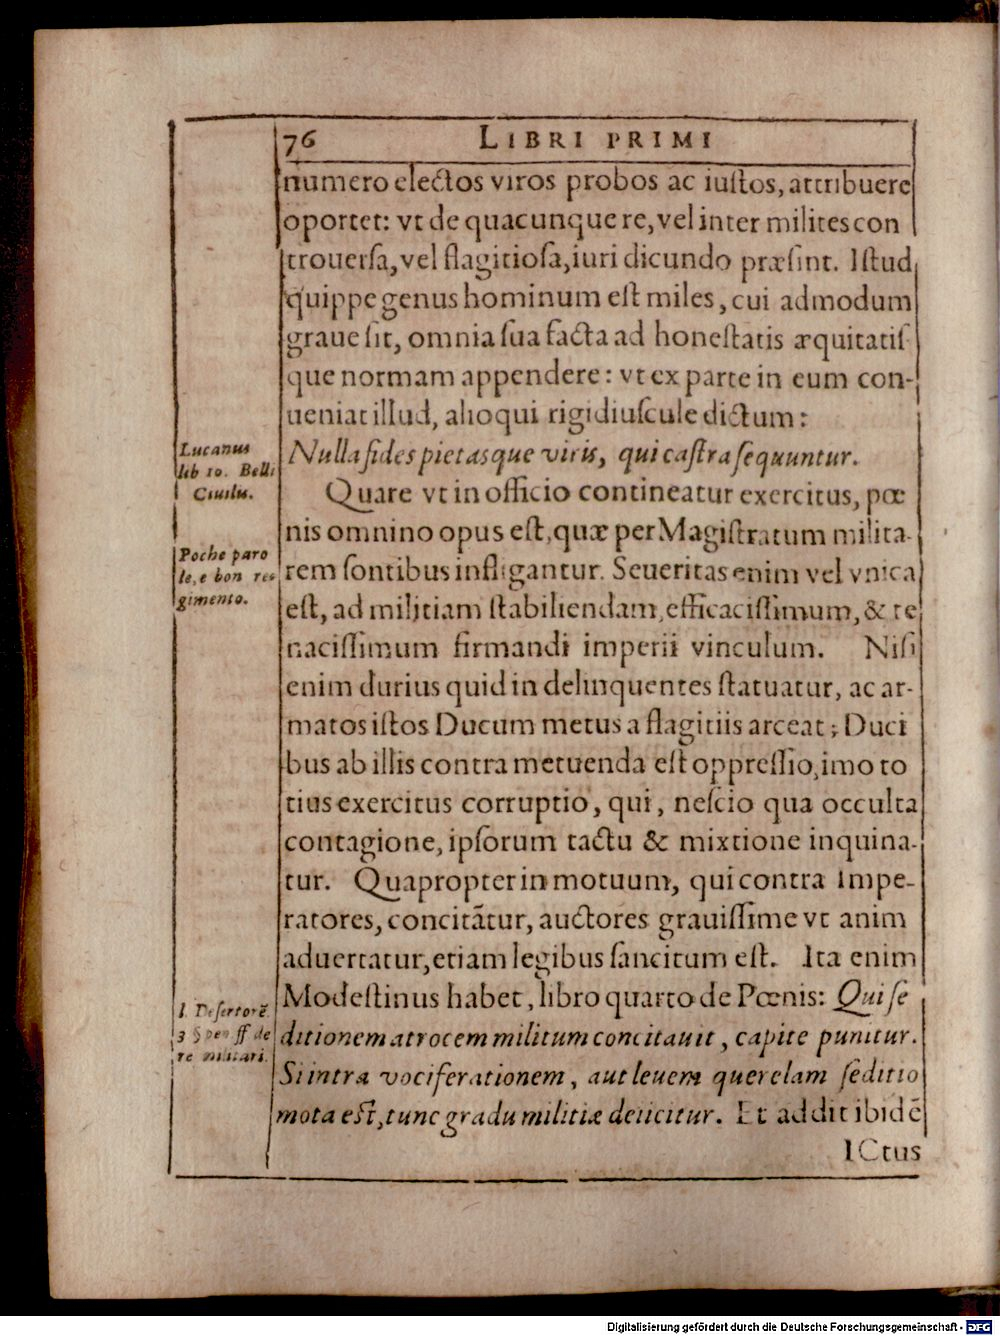 76 LIBRI PRIMI
numero electos viros probos ac iustos, attribuere
oportet: vt de quacunque re, vel inter milites con
trouersa, vel flagitiosa, iuri dicundo præsint. Istud
quippe genus hominum est miles, cui admodum
graue sit, omnia sua facta ad honestatis æquitatis
que normam appendere: vt ex parte in eum con-
ueniat illud, alioqui rigidiuscule dictum:
Lucanus
lib 10. Belli
Ciuilis.
Nulla fides pietasque viris, qui castra sequuntur.
Quare vt in officio contineatur exercitus, pœ
nis omnino opus est, quæ per Magistratum milita-
Poche paro
le, e bon re-
gimento.
rem sontibus infligantur. Seueritas enim vel vnica
est, ad militiam stabiliendam, efficacissimum, & te
nacissimum firmandi imperii vinculum. Nisi
enim durius quid in delinquentes statuatur, ac ar-
matos istos Ducum metus a flagitiis arceat; Duci
bus ab illis contra metuenda est oppressio, imo to
tius exercitus corruptio, qui, nescio qua occulta
contagione, ipsorum tactu & mixtione inquina-
tur. Quapropter in motuum, qui contra Impe-
ratores, concitãtur, auctores grauissime vt anim
aduertatur, etiam legibus sancitum est. Ita enim
Modestinus habet, libro quarto de Pœnis: Qui se
l. Desertorẽ.
3 § pen ff de
re militari.
ditionem atrocem militum concitauit, capite punitur.
Si intra vociferationem, aut leuem querelam seditio
mota est, tunc gradu militiæ deiicitur. Et addit ibidẽ
ICtus
Digitalisierung gefördert durch die Deutsche Forschungsgemeinschaft - DFG